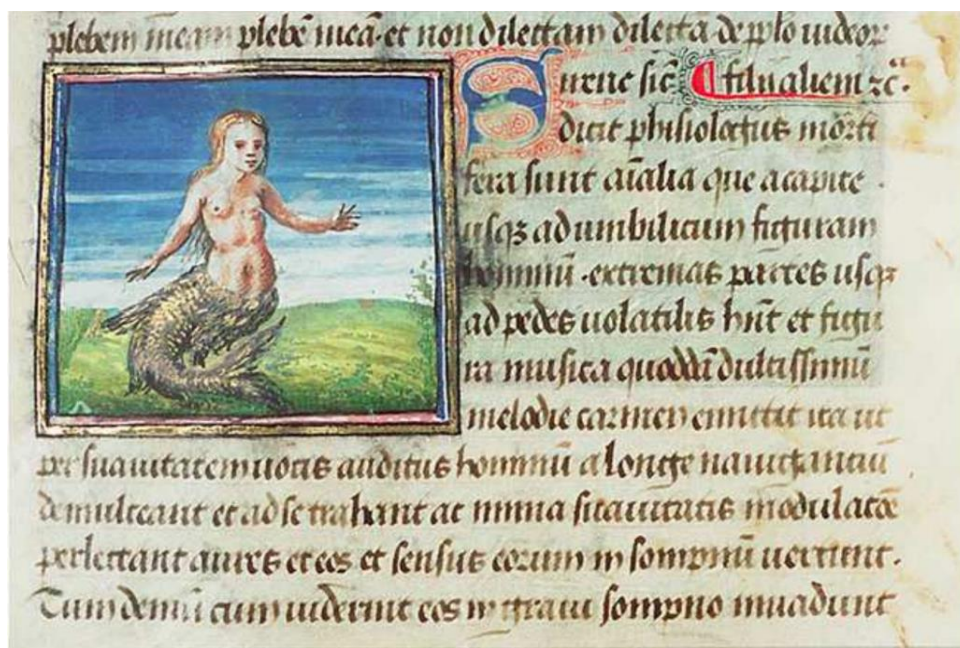 plebem meam plebē meā et non dilectam dilecta de pplo iudeor
Sirene sic̄ filii aliem ⁊c̄.
dicit phisiologus morti
fera sunt aīalia que a capite
usqꝫ ad umbilicum figuram
hominū extremas partes usqꝫ
ad pedes uolatilis hn̄t et figu
ra musica quoddā dulcissimū
melodie carmen emittit ita ut
per suauitatem uocis auditus hominū a longe nauigantiū
demulceant et ad se trahant ac nimia suauitatis modulacōe
perlectant aures et eos et sensus eorum in sompnū uertunt.
Tum demū cum uiderint eos in graui sompno inuadunt